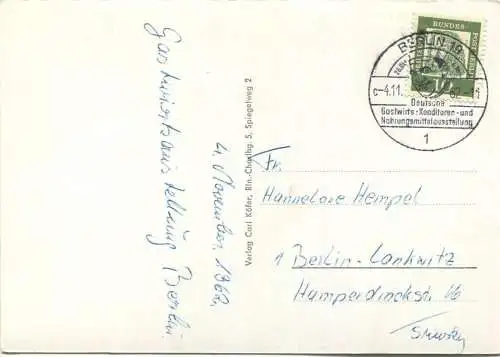 Gastwirtsausstellung Berlin.
4. November 1962.
Verlag Carl Köfer, Bln.-Charlbg. 5, Spiegelweg 2
BUNDES
BERLIN 19
c-4.11. 62-11
Deutsche
Gastwirts-Konditoren-und
Nahrungsmittelausstellung
1
Fr.
Hannelore Hempel
1 Berlin-Lankwitz
Humperdinckstr.